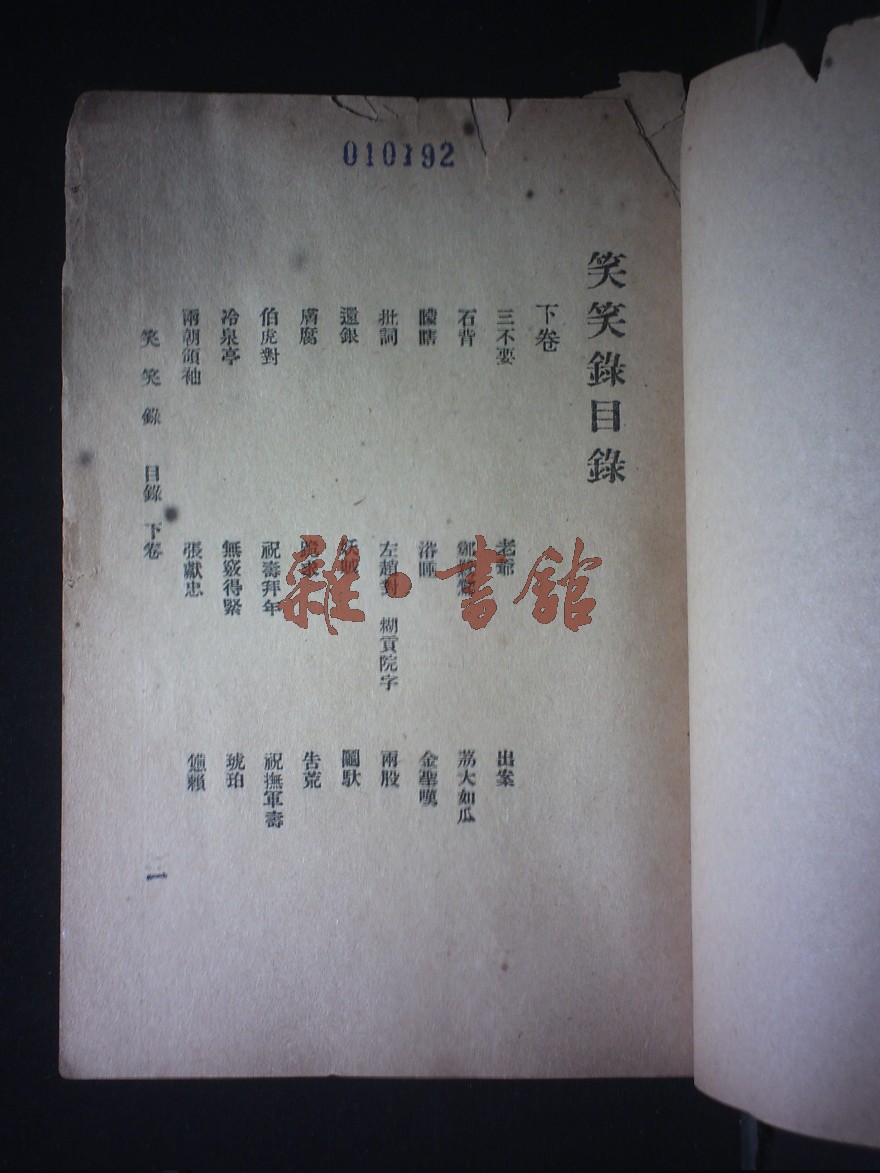 010192
笑笑錄目錄
下卷
三不要 老爺 出案
石背 荔大如瓜
矇瞎 浴睡 金聖嘆
批詞 左趙對 糊貢院字 兩股
還銀 妖賊
膚腐 告荒
伯虎對 祝壽拜年 祝撫軍壽
冷泉亭 無竅得緊 琥珀
兩朝領袖 張獻忠 憊賴
笑笑錄 目錄 下卷 一
雜·書館